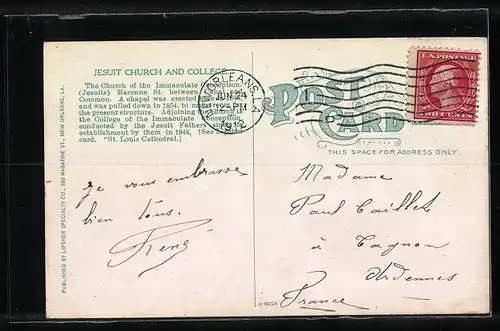 JESUIT CHURCH AND COLLEGE
The Church of the Immaculate Conception
(Jesuits) Baronne St. between
Common. A chapel was erected
and was pulled down in 1854, to make room
the present structure. Adjoining
the College of the Immaculate Conception,
conducted by the Jesuit Fathers since
establishment by them in 1848. (See
card, "St. Louis Cathedral.)
PUBLISHED BY LIPSHER SPECIALTY CO., 320 MAGAZINE ST., NEW ORLEANS, LA.
NEW ORLEANS, LA.
JUN 24
1912
U.S. POSTAGE
TWO CENTS
POST
CARD
THIS SPACE FOR ADDRESS ONLY
Je vous embrasse
bien tous.
René
Madame
Paul Caillet
à Tagnon
Ardennes
France